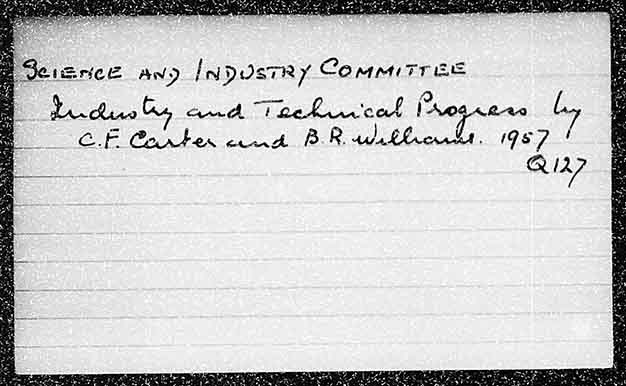 SCIENCE AND INDUSTRY COMMITTEE
Industry and Technical Progress by
C.F. Carter and B.R. Williams. 1957
Q127